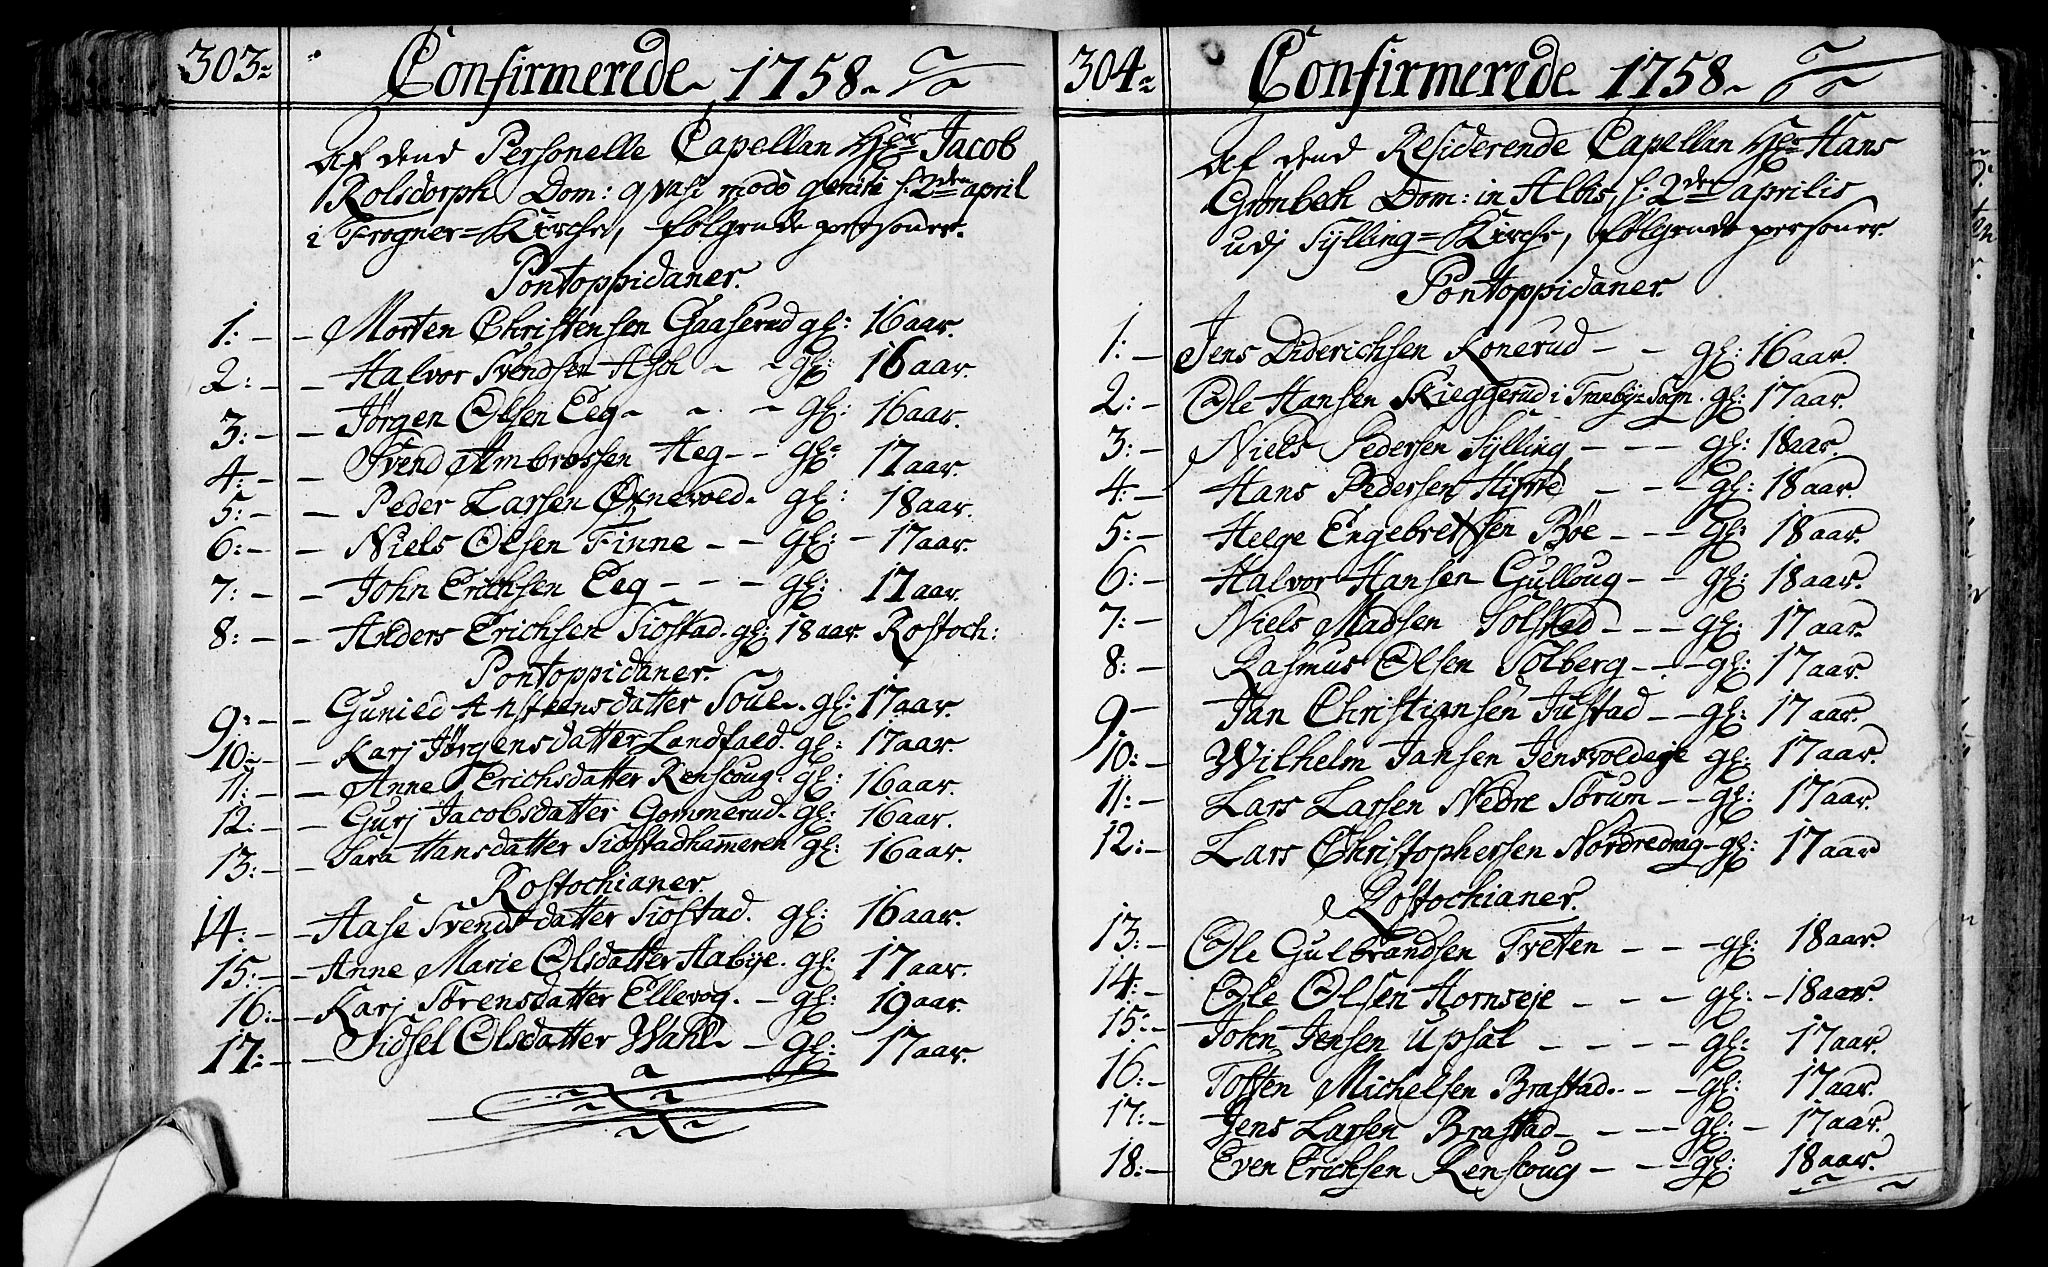 303
Confirmerede 1758
Af dend Personelle Capellan Hr Jacob
Rolsdorph Dom: qvasi modo geniti s: 2den april
i Frogner=Kirche, følgende personer.
Pontoppidaner.
1: Morten Christensen Gaaserud gl: 16 aar.
2: Halvor Svendsen Ask gl: 16 aar.
3: Jørgen Olsen Eeg gl: 16 aar.
4: Svend Ambrossen Heg gl: 17 aar.
5: Peder Larsen Øxnevold gl: 18 aar.
6: Niels Olsen Finne gl: 17 aar.
7: John Erichsen Eeg gl: 17 aar.
8: Anders Erichsen Siostad. gl: 18 aar. Rostoch:
Pontoppidaner.
9: Gunild Ansteensdatter gl: 17 aar.
10: Karj Jørgensdatter Landfald. gl: 17 aar.
11: Anne Erichsdatter Renscoug. gl: 16 aar.
12: Gurj Jacobsdatter Gommerud. gl: 16 aar.
13: Sara Hansdatter Siostadhammeren gl: 16 aar.
Rostochianer.
14: Aase Svendsdatter Siostad. gl: 16 aar.
15: Anne Marie Olsdatter Aabye. gl: 17 aar.
16: Karj Sørensdatter Ellevog. gl: 19 aar.
17: Sidsel Olsdatter Wahl gl: 17 aar.
304
Confirmerede 1758
Af dend Residerende Capellan Hr Hans
Grønbech Dom: in Albis, s: 2den aprilis
udj Sylling=Kirche, følgende personer.
Pontoppidaner.
1: Jens Diderichsen Konerud gl: 16 aar.
2: Ole Hansen Skieggerud i Tranbye=Sogn. gl: 17 aar.
3: Niels Pedersen Sylling gl: 18 aar.
4: Hans Pedersen gl: 18 aar.
5: Helge Engebretsen Bøe gl: 18 aar.
6: Halvor Hansen Gulloug gl: 18 aar.
7: Niels Madsen Solstad gl: 17 aar.
8: Rasmus Olsen Solberg gl: 17 aar.
9 Jan Christiansen Justad gl: 17 aar.
10: Wilhelm Jansen Jensvoldeje gl: 17 aar.
11: Lars Larsen Nedre Sørum gl: 17 aar.
12: Lars Christophersen Nordredrag gl: 17 aar
Rostochianer.
13: Ole Gulbrandsen Tveten gl: 18 aar.
14: Ole Olsen Hornseje gl: 18 aar.
15: John Jensen Upsal gl: 17 aar.
16: Tosten Michelsen Brastad. gl: 17 aar.
17: Jens Larsen Brastad gl: 17 aar.
18: Even Erichsen Renscoug gl: 18 aar.